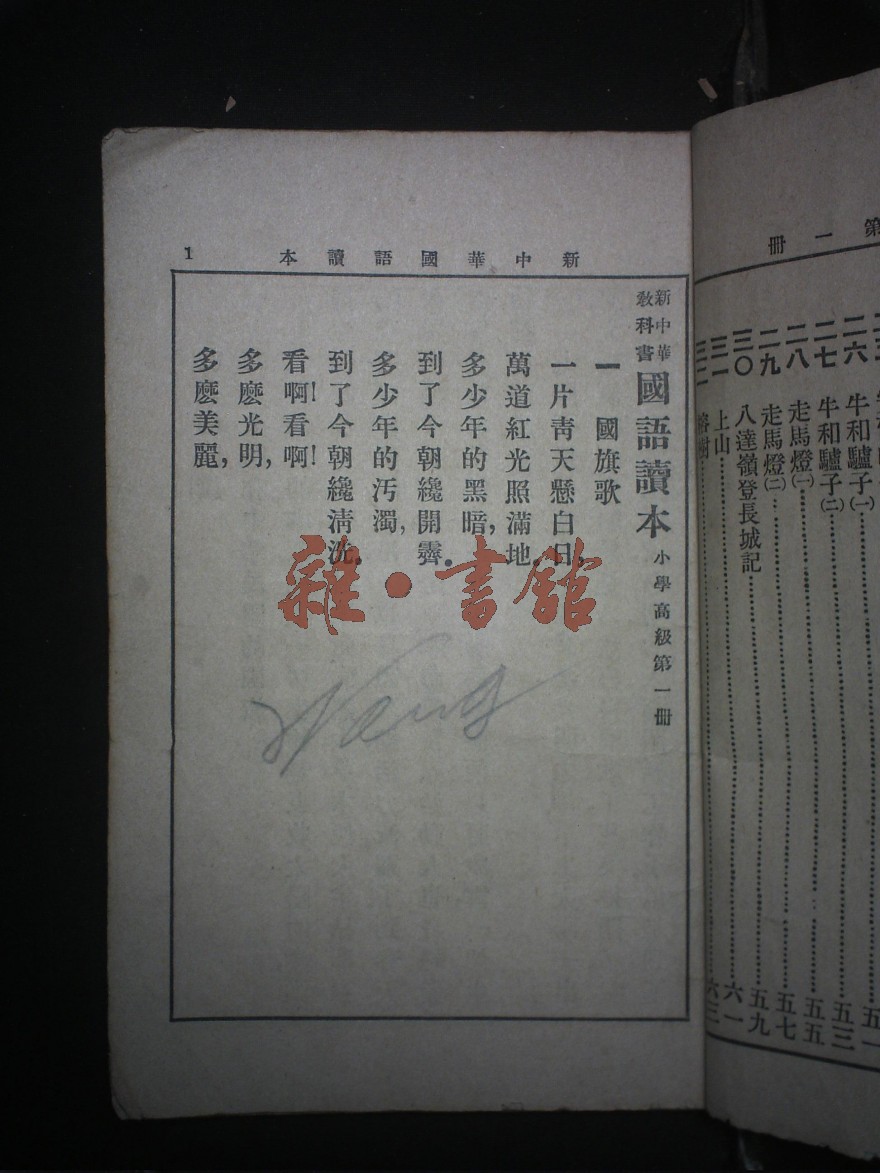 第一冊
二六 牛和驢子(一)
二七 牛和驢子(二) 五三
二八 走馬燈(一) 五五
二九 走馬燈(二) 五七
三〇 八達嶺登長城記 五九
三一 上山 六一
新中華國語讀本 1
新中華教科書 國語讀本 小學高級第一冊
一 國旗歌
一片靑天懸白日,
萬道紅光照滿地.
多少年的黑暗,
到了今朝纔開霽.
多少年的汚濁,
到了今朝纔淸洗.
看啊!看啊!
多麽光明,
多麽美麗,
雜·書館
Wang